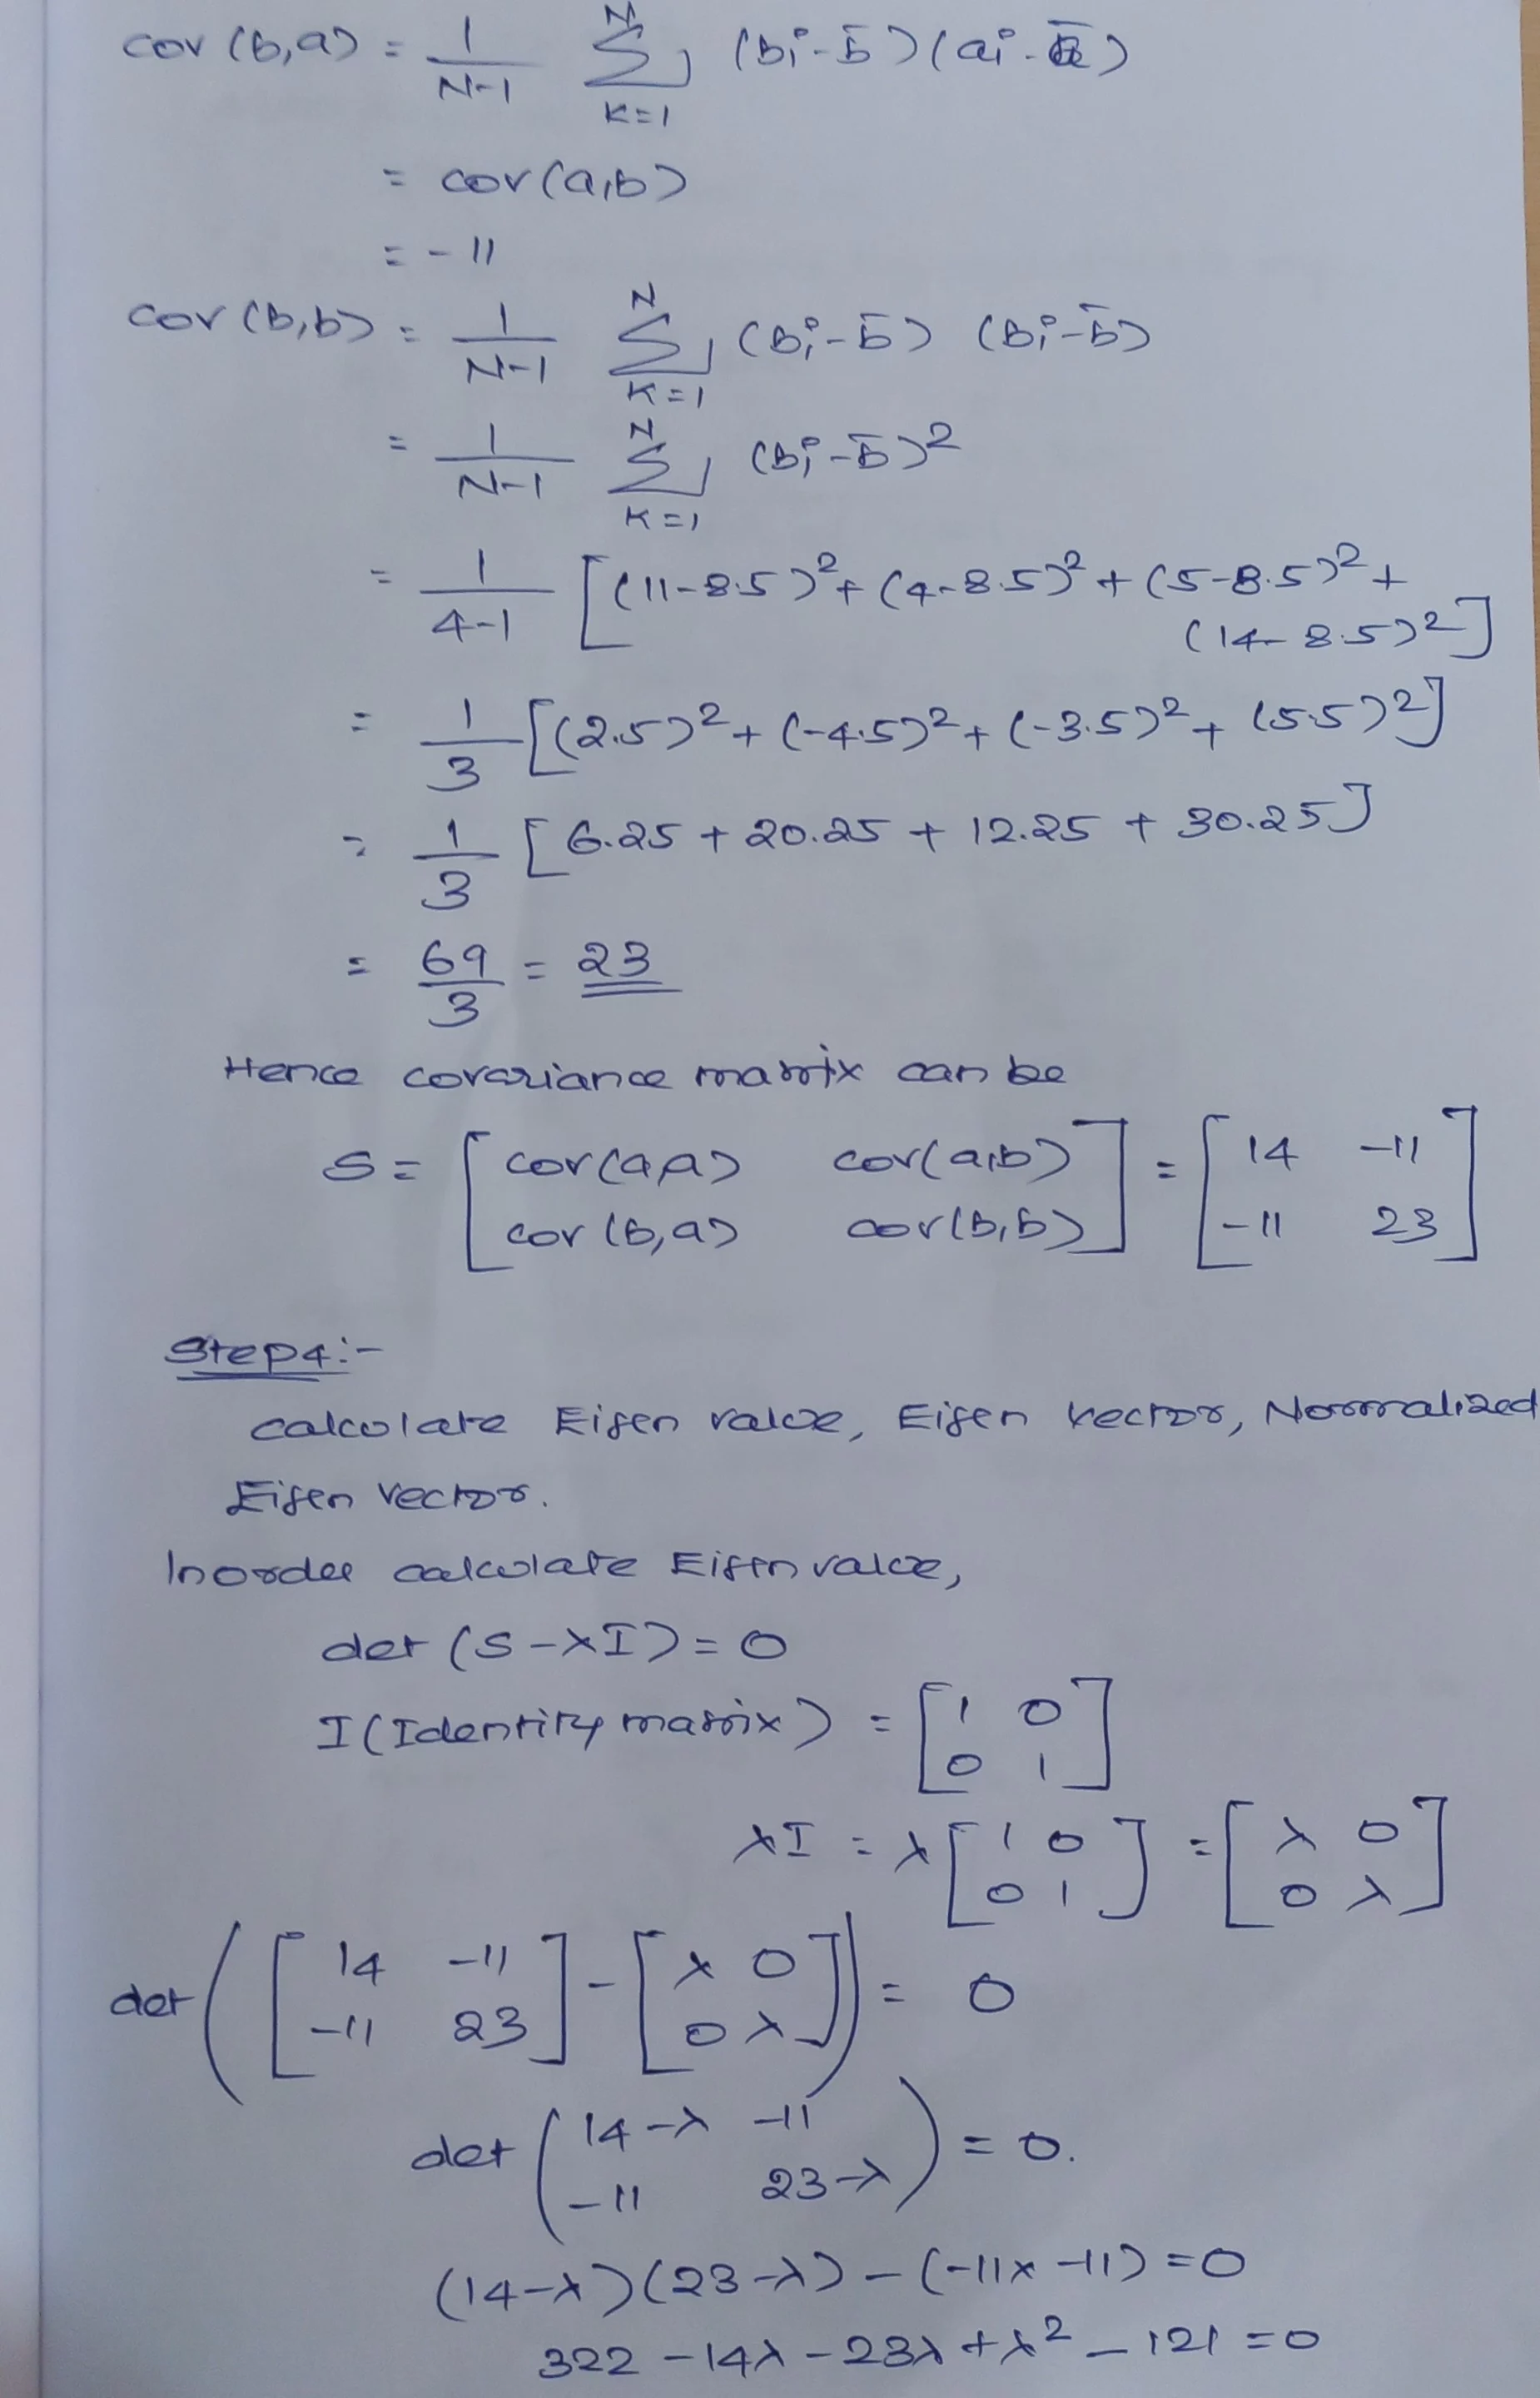 cov (b,a) = 1/(N-1) N Σ K=1 (bi - b̄)(ai - ā)
= cov(a,b)
= -11
cov (b,b) = 1/(N-1) N Σ K=1 (bi - b̄) (bi - b̄)
= 1/(N-1) N Σ K=1 (bi - b̄)²
= 1/(4-1) [(11-8.5)² + (4-8.5)² + (5-8.5)² +
(14-8.5)²]
= 1/3 [(2.5)² + (-4.5)² + (-3.5)² + (5.5)²]
= 1/3 [6.25 + 20.25 + 12.25 + 30.25]
= 69/3 = 23
Hence covariance matrix can be
S = [cov(a,a) cov(a,b)] = [14 -11]
[cov(b,a) cov(b,b)] [-11 23]
Step4:-
calculate Eigen value, Eigen vector, Normalized
Eigen vector.
Inorder calculate Eigen value,
det (S - λI) = 0
I (Identity matrix) = [1 0]
[0 1]
λI = λ [1 0] = [λ 0]
[0 1] [0 λ]
det ([14 -11] - [λ 0]) = 0
[-11 23] [0 λ]
det (14-λ -11) = 0.
(-11 23-λ)
(14-λ)(23-λ) - (-11 x -11) = 0
322 - 14λ - 23λ + λ² - 121 = 0